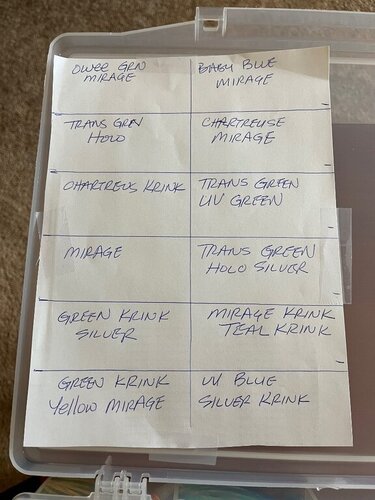 OLIVE GRN
MIRAGE
BABY BLUE
MIRAGE
TRANS GRN
HOLO
CHARTREUSE
MIRAGE
CHARTREUS KRINK
TRANS GREEN
UV GREEN
MIRAGE
TRANS GREEN
HOLO SILVER
GREEN KRINK
SILVER
MIRAGE KRINK
TEAL KRINK
GREEN KRINK
Yellow MIRAGE
UV BLUE
SILVER KRINK